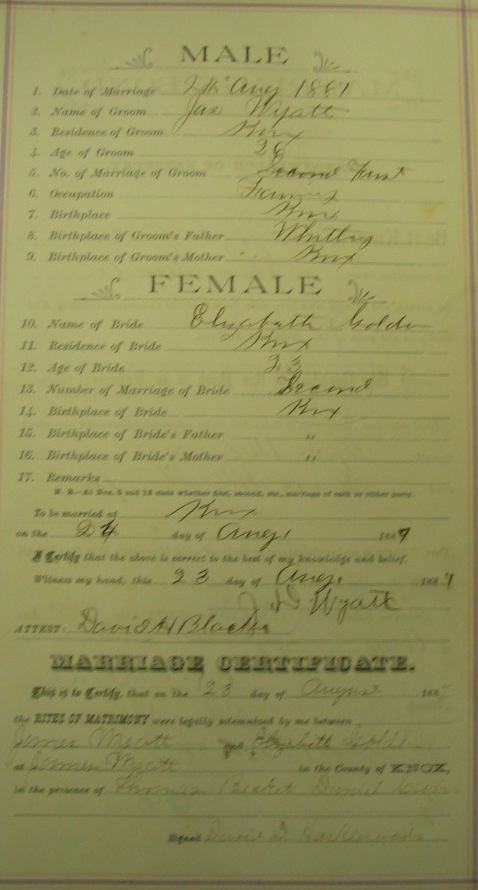 MALE
1. Date of Marriage Aug 1887
2. Name of Groom Jas Wyatt
3. Residence of Groom Knox
4. Age of Groom 26
5. No. of Marriage of Groom Second
6. Occupation
7. Birthplace Knox
8. Birthplace of Groom's Father Whitley
9. Birthplace of Groom's Mother Knox
FEMALE
10. Name of Bride Elizabeth Golden
11. Residence of Bride Knox
12. Age of Bride 23
13. Number of Marriage of Bride Second
14. Birthplace of Bride Knox
15. Birthplace of Bride's Father "
16. Birthplace of Bride's Mother "
17. Remarks
N. B.—At Nos. 5 and 13 state whether first, second, etc., marriage of each or either party.
To be married at Knox
on the 24 day of Aug. 1887
I Certify that the above is correct to the best of my knowledge and belief.
Witness my hand, this 23 day of Aug. 1887
Wyatt
ATTEST: David H Black
MARRIAGE CERTIFICATE.
This is to Certify, that on the 23 day of August 188
the RITES OF MATRIMONY were legally solemnized by me between
James Wyatt and Elizabeth
at James Wyatt in the County of KNOX,
in the presence of Thomas Becket Daniel
Signed David